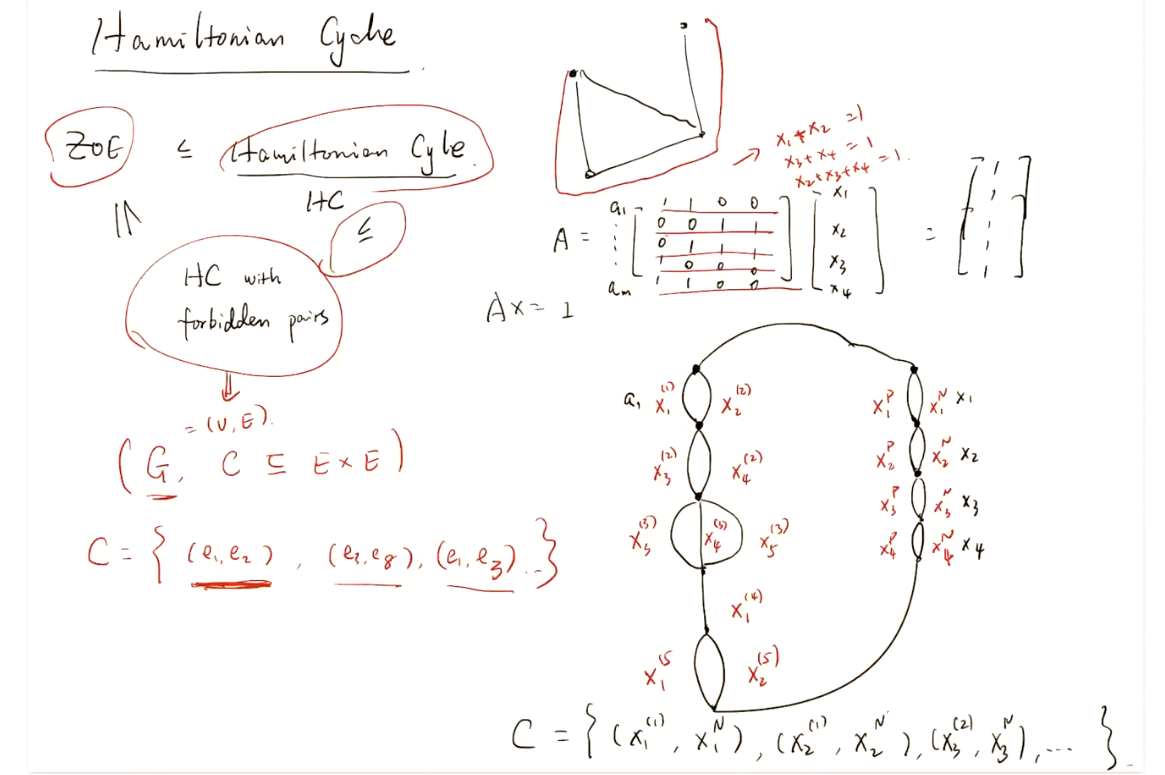 Hamiltonian Cycle
ZOE ≤ Hamiltonian Cycle
HC
≤
HC with
forbidden pairs
= (V, E).
(G, C ⊆ E × E)
C = { (e1, e2), (e3, e8), (e1, e3) ... }
x1 + x2 = 1
x3 + x4 = 1
x2 + x3 + x4 = 1.
A = a1 ⋮ am [ 1 1 0 0
0 0 1 1
0 1 1 1
1 0 0 0
1 1 0 0 ] [ x1 x2 x3 x4 ] = [ 1 1 1 1 1 ]
Ax = 1
a1 x1^(1) x2^(2) x1^P x1^N x1
x3^(2) x4^(2) x2^P x2^N x2
x3^(3) x4^(3) x5^(3) x3^P x3^N x3
x4^P x4^N x4
x1^(4)
x1^(5 x2^(5)
C = { (x1^(1), x1^N), (x2^(1), x2^N), (x3^(2), x3^N), ... }.